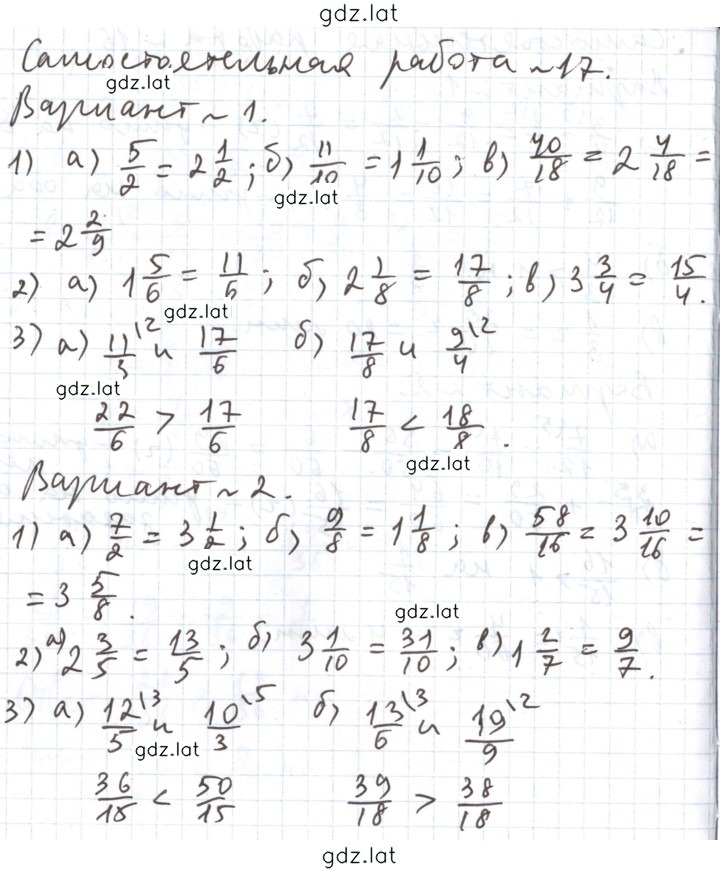 gdz.lat
Самостоятельная работа №17.
gdz.lat
Вариант №1.
1) а) 5/2 = 2 1/2; б) 11/10 = 1 1/10; в) 40/18 = 2 4/18 =
gdz.lat
= 2 2/9
2) а) 1 5/6 = 11/6; б) 2 1/8 = 17/8; в) 3 3/4 = 15/4.
gdz.lat
3) а) 11/3 \2 и 17/6 б) 17/8 и 9/4 \2
gdz.lat
22/6 > 17/6 17/8 < 18/8.
gdz.lat
Вариант №2.
1) а) 7/2 = 3 1/2; б) 9/8 = 1 1/8; в) 58/16 = 3 10/16 =
gdz.lat
= 3 5/8.
gdz.lat
2) а) 2 3/5 = 13/5; б) 3 1/10 = 31/10; в) 1 2/7 = 9/7.
3) а) 12/5 \3 и 10/3 \5 б) 13/6 \3 и 19/9 \2
gdz.lat
36/15 < 50/15 39/18 > 38/18
gdz.lat